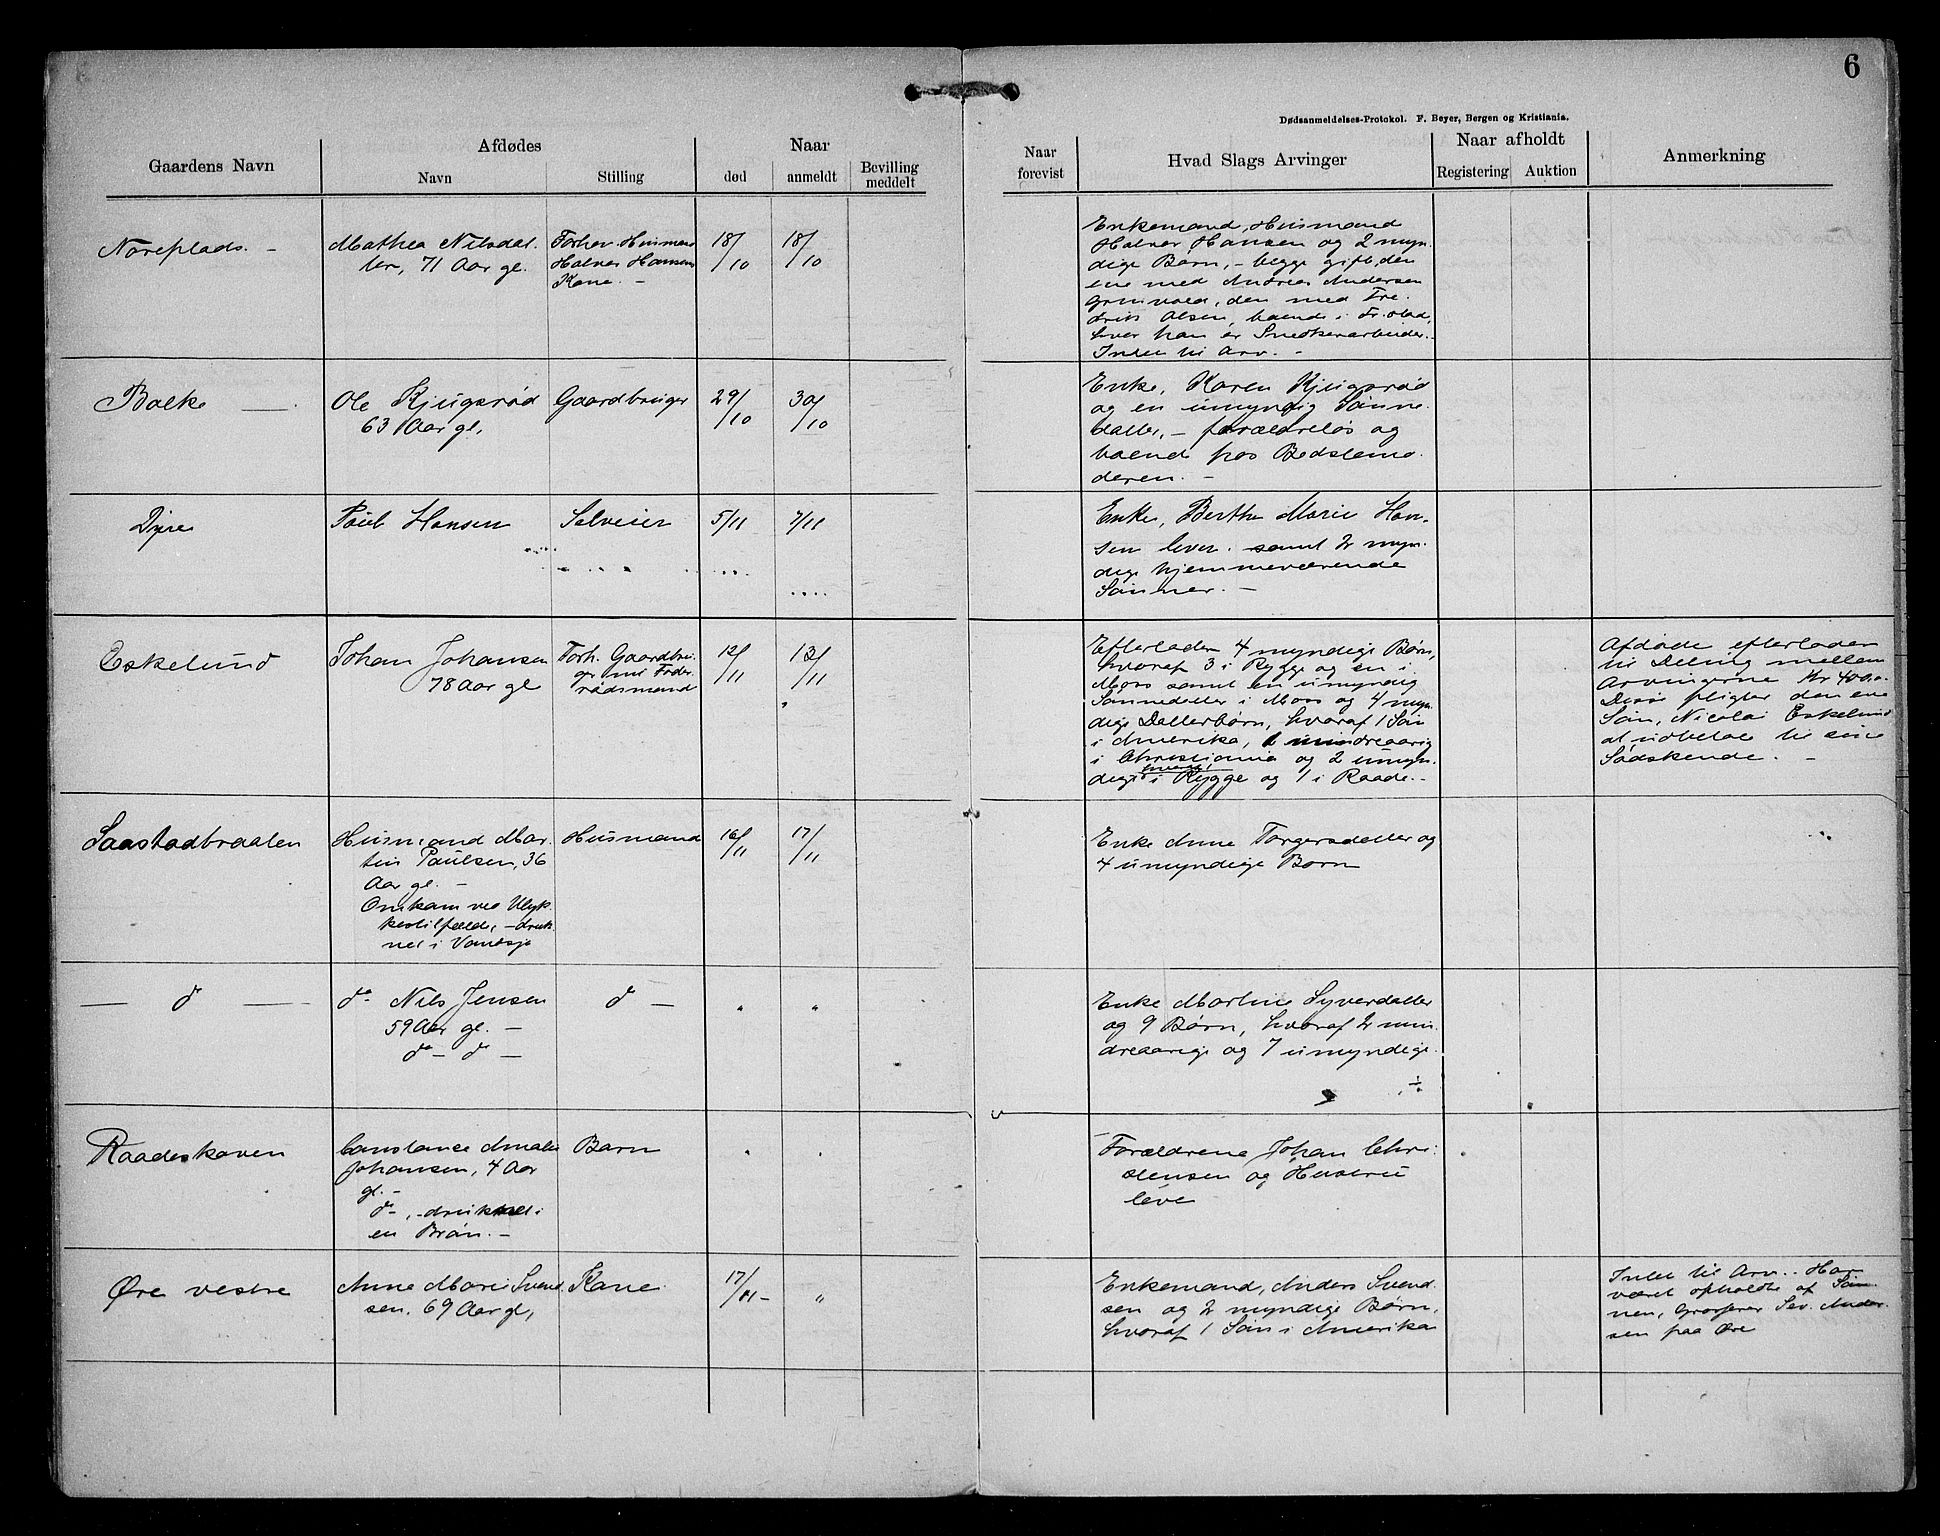 6
Dødsanmeldelses-Protokol. F. Beyer, Bergen og Kristiania.
Gaardens Navn
Afdødes
Navn
Stilling
Naar
død
anmeldt
Bevilling
meddelt
Naar
forevist
Hvad Slags Arvinger
Naar afholdt
Registering
Auktion
Anmerkning
Noreplads. -
Mathea Nilsdat
ter, 71 Aar gl.
Forhen Husmand
Halvor Hansens
Kone. -
18/10
18/10
Enkemand, Husmand
Halvor Hansen og 2 myn
dige Børn, - begge gift, den
ene med Andreas Andersen
Grimvold, den med Fre
drik Olsen, boende i Fr.stad,
hvor han er Snedkerarbeider.
Intet til Arv. -
Bolke
Ole Kjugsrød
63 Aar gl,
Gaardbruger
29/10
30/10
Enke, Karen Kjugsrød
og en umyndig Sønne
datter, - forældreløs og
boende hos Bedstemo
deren. -
Dyre
Paul Hansen
Selveier
5/11
7/11
Enke, Berthe Marie Han
sen lever. samt 2 myn
dige hjemmeværende
Sønner. -
Eskelund
Johan Johansen
78 Aar gl
Forh. Gaardbru
ger nu Føde
rådsmand
12/11
13/11
Efterlader 4 myndige Børn,
hvoraf 3 i Rygge og en i
Moss samt en umyndig
Sønnedatter i Moss og 4 myn
dige Datterbørn, hvoraf 1 Søn
i Amerika, 1 mindreaarig
i Christiania og 2 umyn
dige i Rygge og 1 i Raade. -
Afdøde efterlader
til Deling mellem
Arvingerne Kr 400,0
Disse pligter den ene
Søn, Nicolai Eskelund
at udbetale til sine
Sødskende. -
Saastadbraaten
Husmand Mar
tin Paulsen, 36
Aar gl. -
Omkom ved Ulyk
kestilfælde, - druk
net i Vandsjø
Husmand
16/11
17/11
Enke Anne Torgersdatter og
4 umyndige Børn
— d —
do Nils Jensen
59 Aar gl. -
do - do -
d -
"
"
Enke Martine Syverdatter
og 9 Børn, hvoraf 2 min
dreaarige og 7 umyndige.
÷
Raadeskoven
Constance Amalie
Johansen, 4 Aar
gl. -
do -, - druknet i
en Brøn. -
Barn
"
"
Forældrene Johan Chri
stensen og Hustru
leve
Øre vestre
Anne Marie Svend
sen, 69 Aar gl,
Kone
17/11 -
"
Enkemand, Anders Svend
sen og 2 myndige Børn,
hvoraf 1 Søn i Amerika
Intet til Arv. . Har
været opholdt af Søn
nen, Grosserer Sev. Ander
sen paa Øre